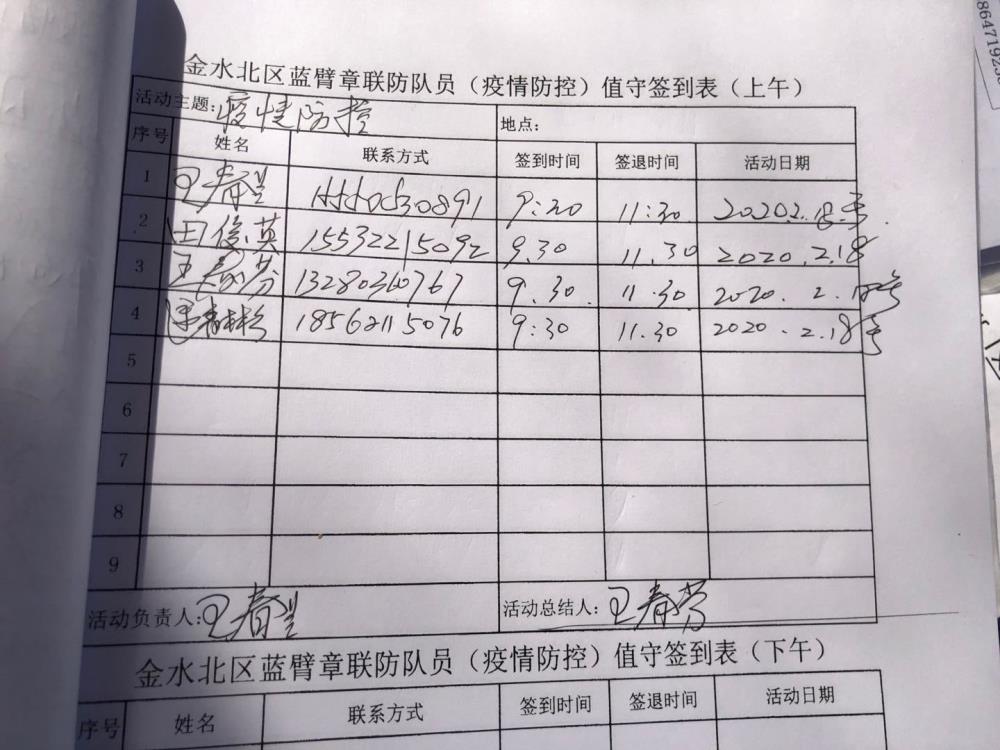 8647192
金水北区蓝臂章联防队员（疫情防控）值守签到表（上午）
活动主题：疫情防控 地点：
序号 姓名 联系方式 签到时间 签退时间 活动日期
1 王春兰 9:30 11:30 2020.2.18号.
2 田俊英 15532215092 9.30 11.30 2020.2.18
3 王春芬 13280360767 9.30 11.30 2020.2.18号
4 18562115076 9:30 11.30 2020.2.18号
5
6
7
8
9
活动负责人：王春兰 活动总结人：王春芬
金水北区蓝臂章联防队员（疫情防控）值守签到表（下午）
序号 姓名 联系方式 签到时间 签退时间 活动日期